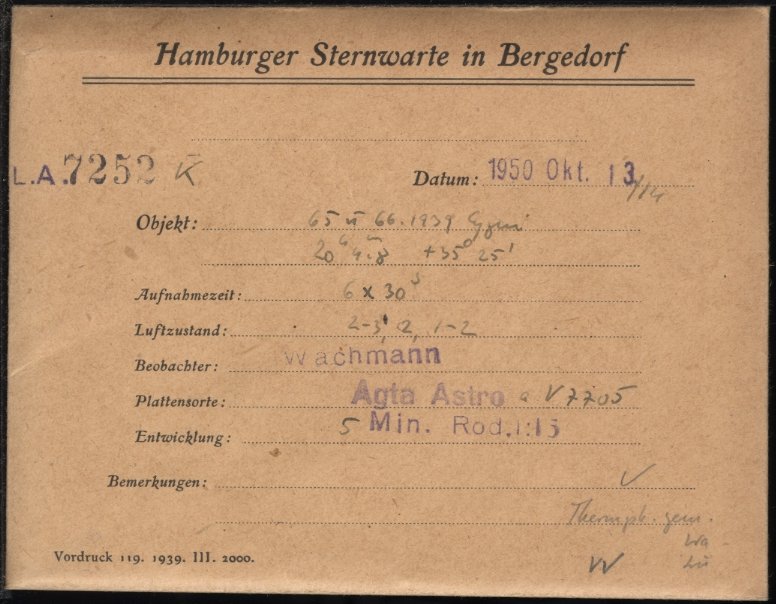 Hamburger Sternwarte in Bergedorf
L.A. 7252 K Datum: 1950 Okt. 13/14
Objekt: 65 u 66.1939 Cygni
20ʰ 4ᵐ.8 +35° 25'
Aufnahmezeit: 6 x 30ˢ
Luftzustand: 2-3, 2, 1-2
Beobachter: Wachmann
Plattensorte: Agfa Astro V 7705
Entwicklung: 5 Min. Rod. 1:15
Bemerkungen: ✓
Thermph. gem.
Wa
W
Vordruck 119. 1939. III. 2000.